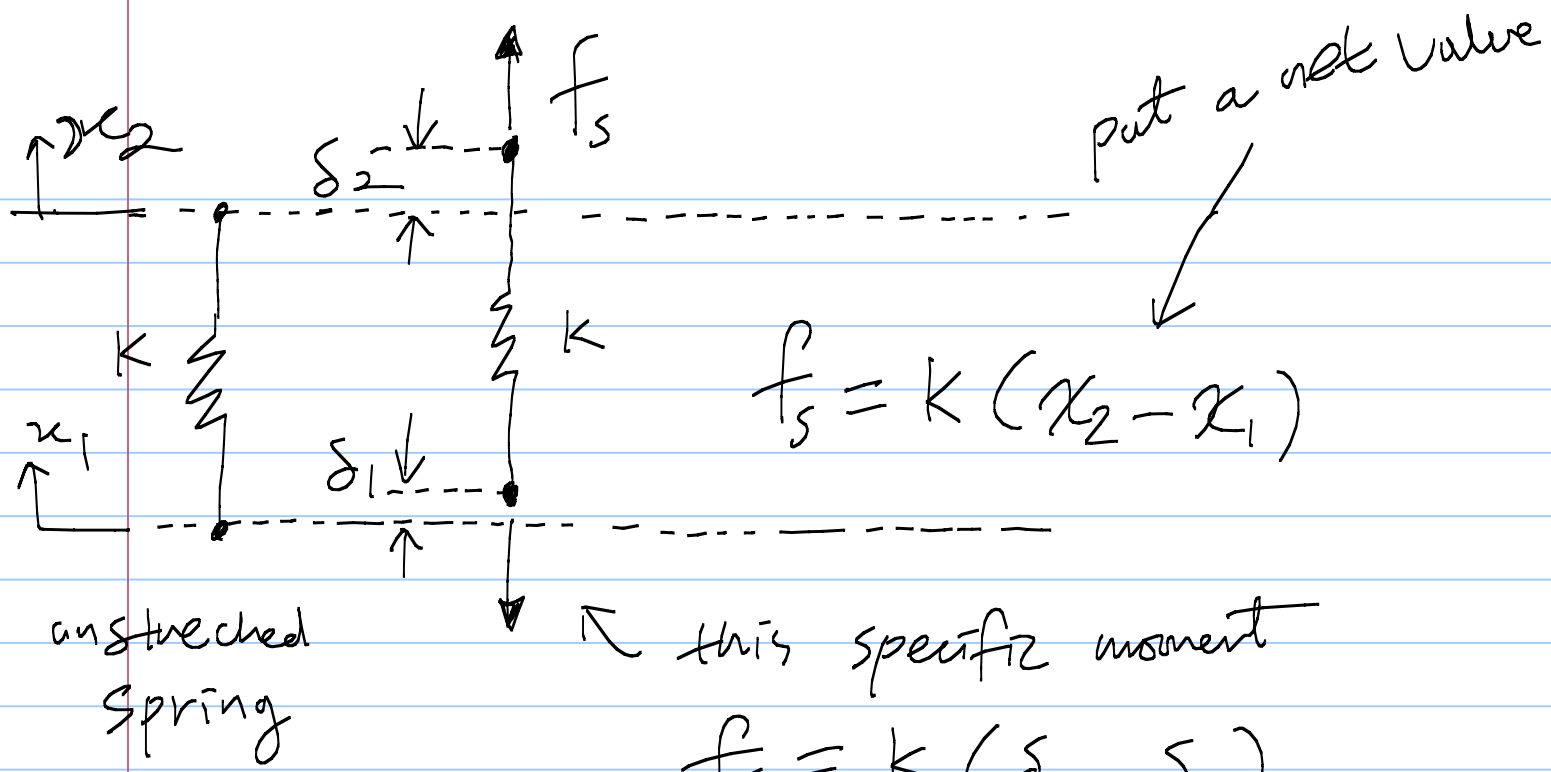 f_s
put a net value
x_2
δ_2
K
K
f_s = K (x_2 - x_1)
x_1
δ_1
unstreched
spring
this specific moment
f = k (δ δ )